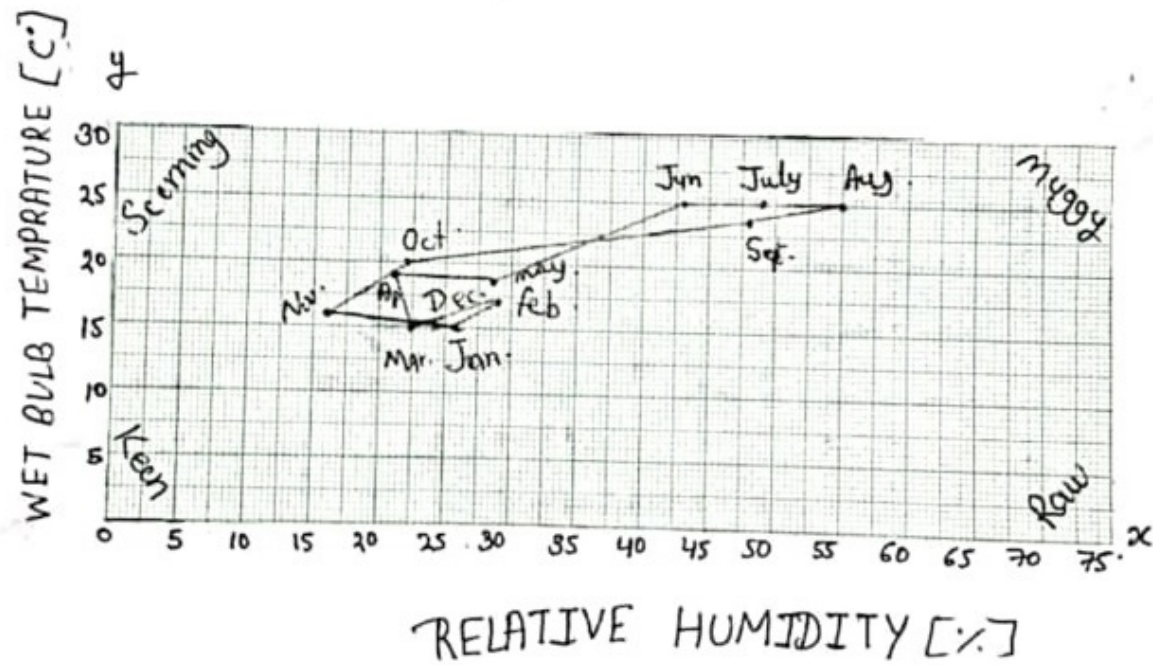 WET BULB TEMPRATURE [C°]
y
30
25
20
15
10
5
Scorning
Muggy
Keen
Raw
Jun July Aug
Oct
Sep.
may
Nov.
Ap
Dec.
feb
Mar. Jan.
0 5 10 15 20 25 30 35 40 45 50 55 60 65 70 75. x
RELATIVE HUMIDITY [%]